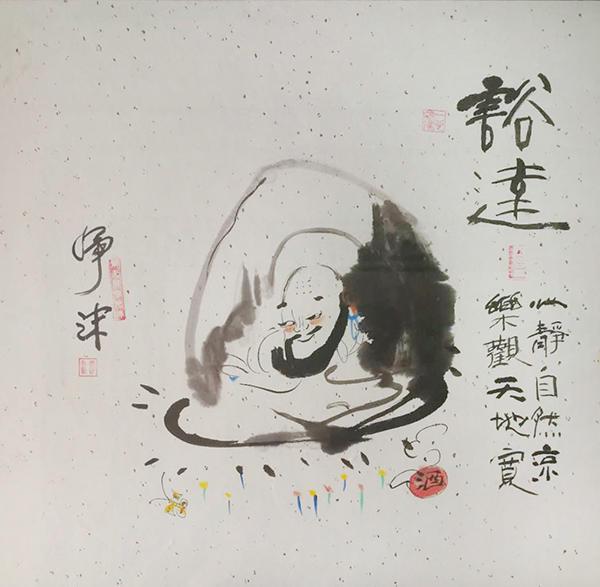 豁達
心靜自然凉
樂觀天地寬
酒